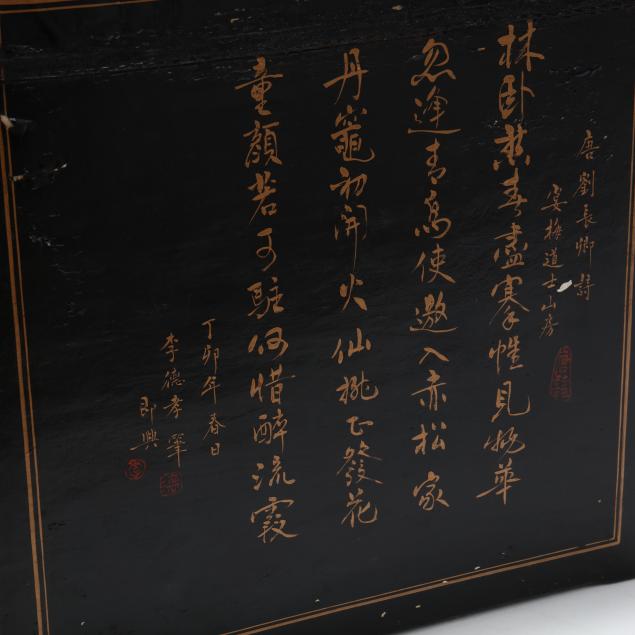 唐劉長卿詩
宴梅道士山房
林卧愁春盡搴帷見物華
忽逢青鳥使邀入赤松家
丹竈初開火仙桃正發花
童顏若可駐何惜醉流霞
丁卯年春日
李德孝筆
即興